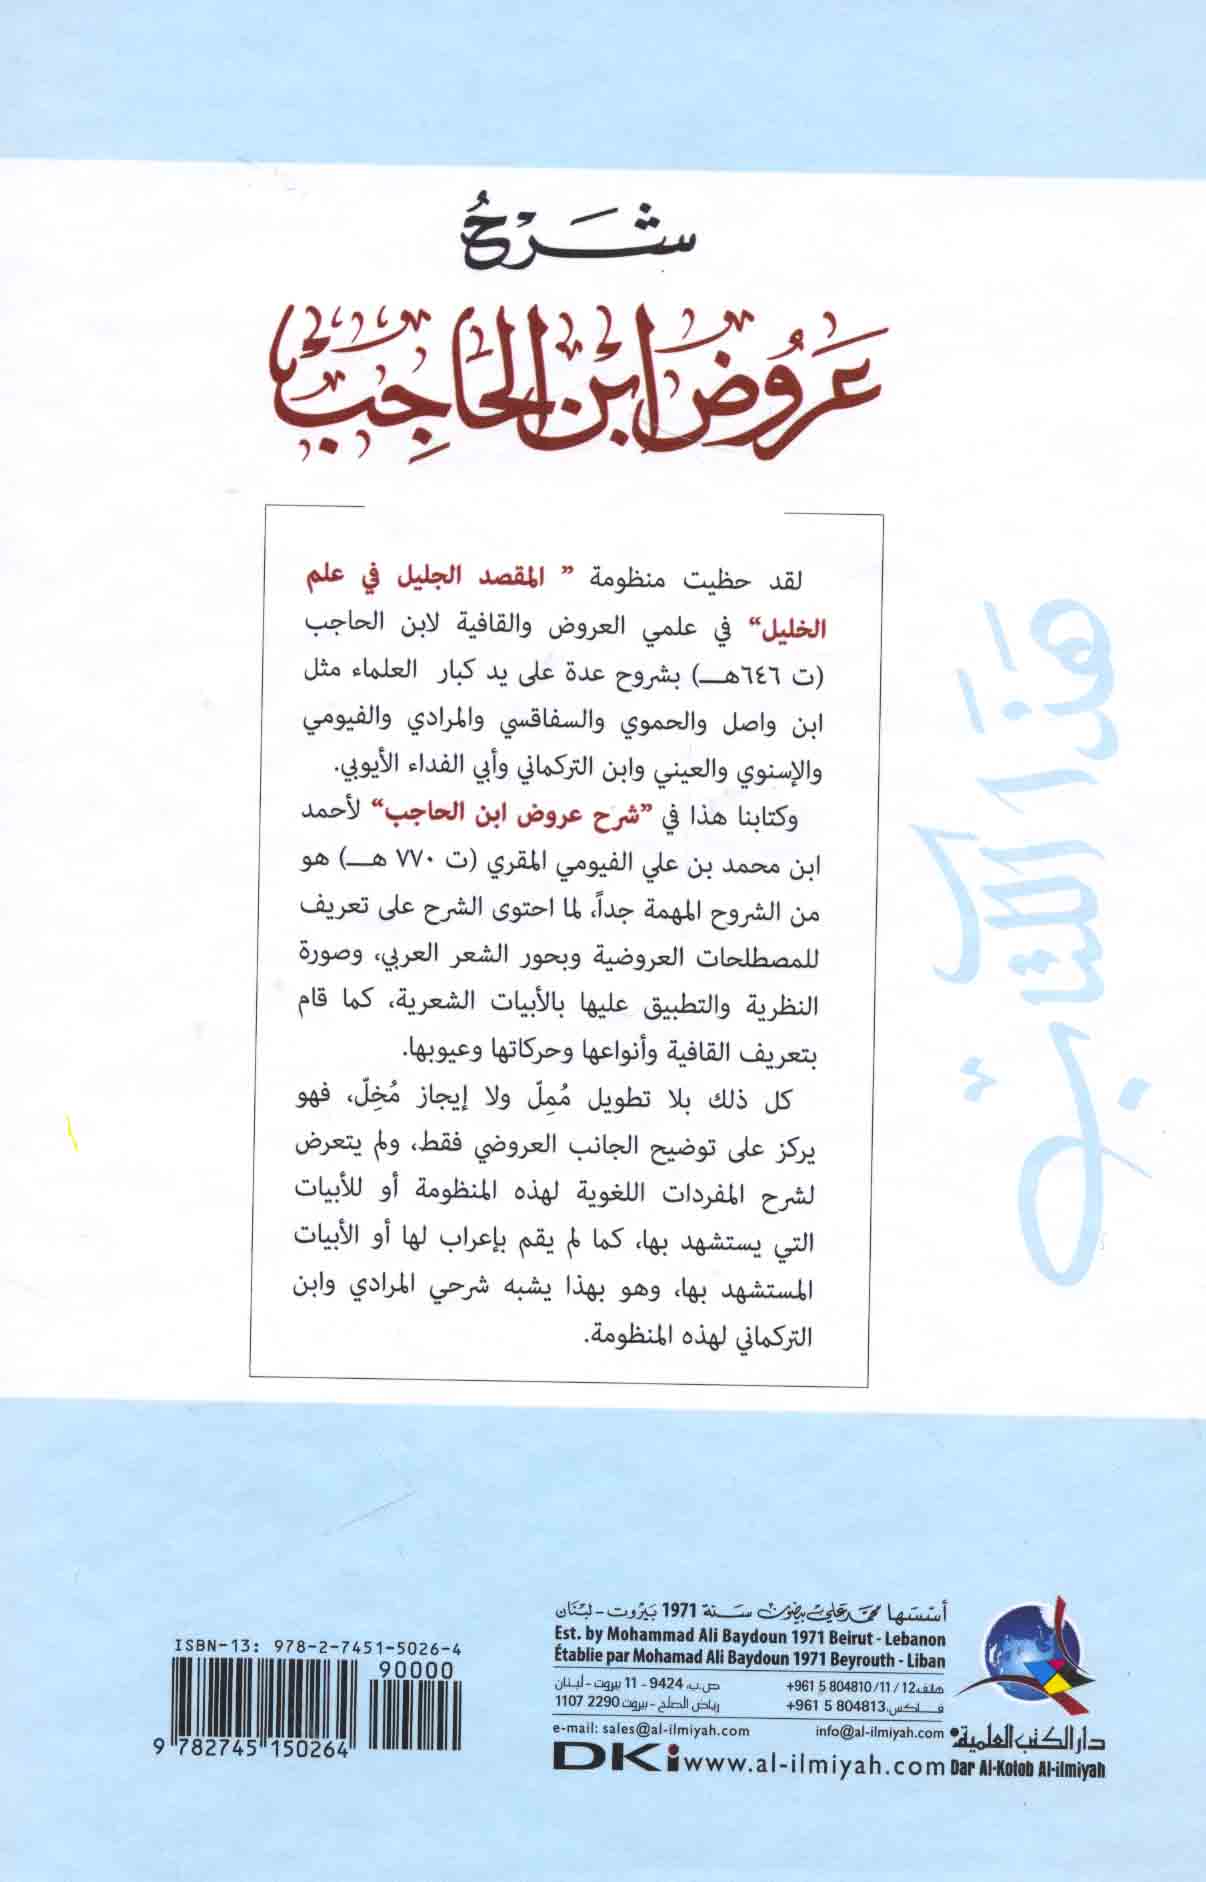 شَرْحُ
عَرُوض ابْن الْحَاجِب
لقد حظيت منظومة " المقصد الجليل في علم
الخليل" في علمي العروض والقافية لابن الحاجب
(ت ٦٤٦هـ) بشروح عدة على يد كبار العلماء مثل
ابن واصل والحموي والسفاقسي والمرادي والفيومي
والإسنوي والعيني وابن التركماني وأبي الفداء الأيوبي.
وكتابنا هذا في "شرح عروض ابن الحاجب" لأحمد
ابن محمد بن علي الفيومي المقري (ت ٧٧٠ هـ) هو
من الشروح المهمة جداً، لما احتوى الشرح على تعريف
للمصطلحات العروضية وبحور الشعر العربي، وصورة
النظرية والتطبيق عليها بالأبيات الشعرية، كما قام
بتعريف القافية وأنواعها وحركاتها وعيوبها.
كل ذلك بلا تطويل مُمِلّ ولا إيجاز مُخِلّ، فهو
يركز على توضيح الجانب العروضي فقط، ولم يتعرض
لشرح المفردات اللغوية لهذه المنظومة أو للأبيات
التي يستشهد بها، كما لم يقم بإعراب لها أو الأبيات
المستشهد بها، وهو بهذا يشبه شرحي المرادي وابن
التركماني لهذه المنظومة.
هَذَا الكِتَابُ
أسّسَها محمد علي بيضون سنة 1971 بَيروت - لبنَان
Est. by Mohammad Ali Baydoun 1971 Beirut - Lebanon
Établie par Mohamad Ali Baydoun 1971 Beyrouth - Liban
هاتف: +961 5 804810/11/12 ص.ب: 9424 - 11 بيروت - لبنان
فاكس: +961 5 804813 رياض الصلح - بيروت 2290 1107
e-mail: sales@al-ilmiyah.com info@al-ilmiyah.com
DKi www.al-ilmiyah.com
دار الكتب العلمية
Dar Al-Kotob Al-ilmiyah
ISBN-13: 978-2-7451-5026-4
90000
9 782745 150264